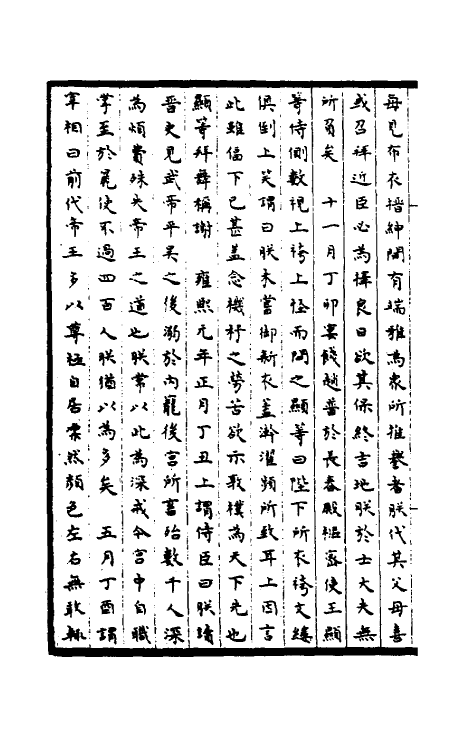 每見布衣搢紳間有端雅為衆所推譽者朕代其父母喜
或召拜近臣必為擇良日欲其保終吉地朕於士大夫無
所負矣　十一月丁卯宴餞趙普於長春殿樞密使王顯
等侍側數視上袴上怪而問之顯等曰陛下所衣袴文縷
俱倒上笑謂曰朕未嘗御新衣蓋澣濯頻所致耳上因言
此雖偪下已甚盖念機杼之勞苦欲示敦樸為天下先也
顯等拜舞稱謝　雍熙元年正月丁丑上謂侍臣曰朕讀
晉史見武帝平吳之後溺於內寵後宮所畜殆數千人深
為煩費殊失帝王之道也朕常以此為深戒今宮中自職
掌至於麄使不過四百人朕猶以為多矣　五月丁酉謂
宰相曰前代帝王多以尊極自居凜然顏色左右無敢輒